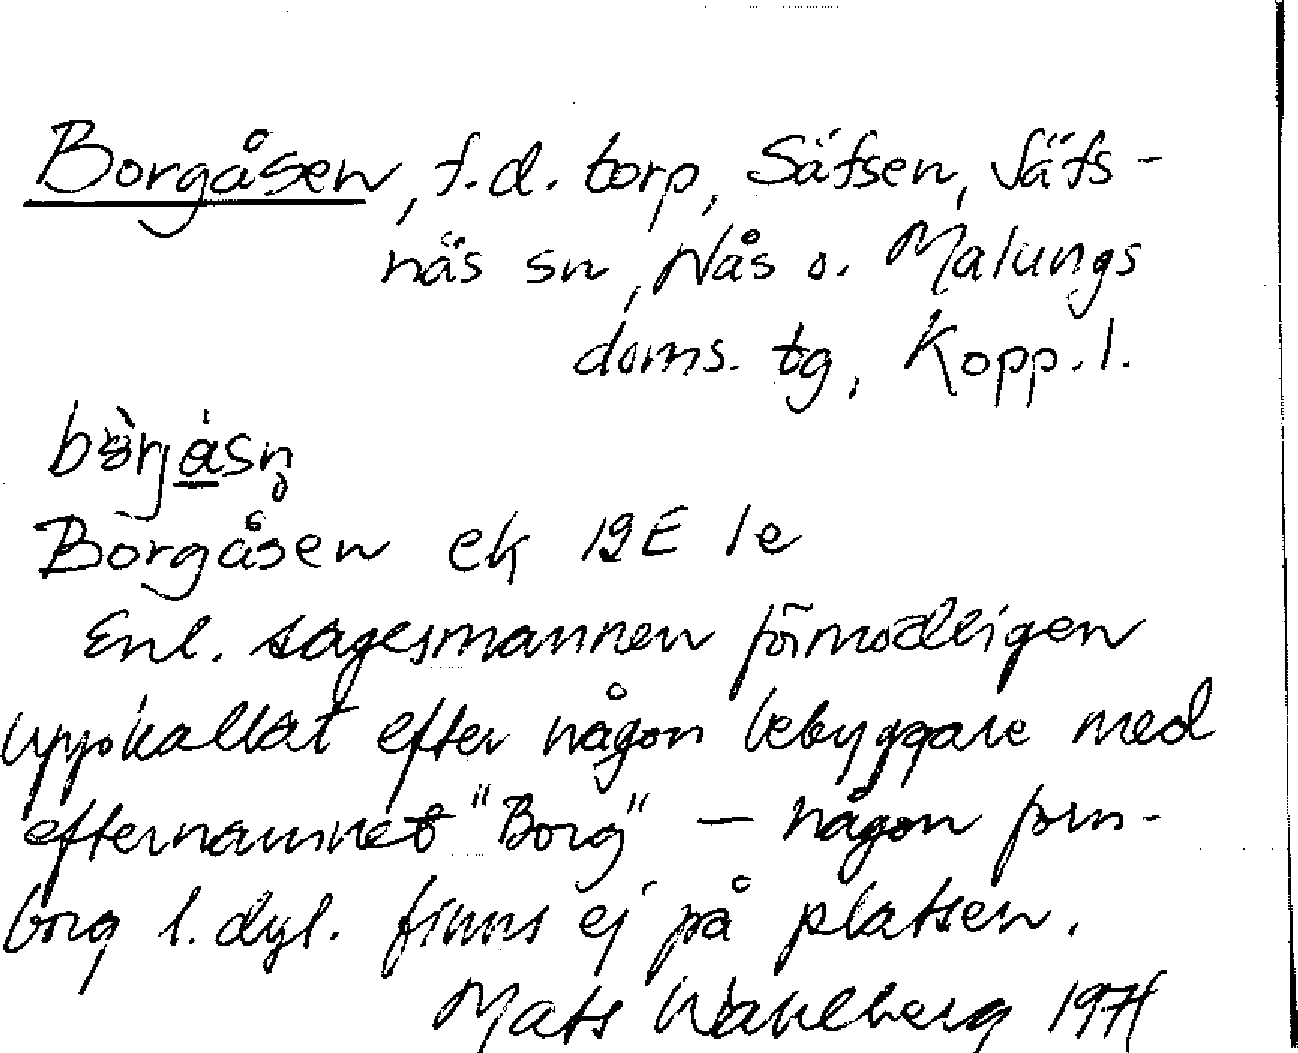 Borgåsen, f.d. torp, Säfsen, Säfs-
näs sn, Nås o. Malungs
doms. tg, Kopp. l.
Borgåsen ek 12E 1e
Enl. sagesmannen förmodligen
uppkallat efter någon bebyggare med
efternamnet "Borg" — någon forn-
borg l. dyl. finns ej på platsen.
Mats Wahlberg 1971